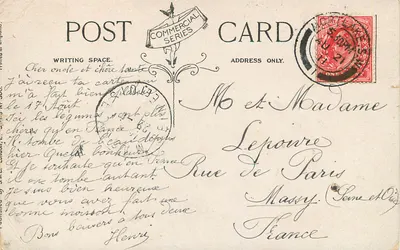 POST CARD
COMMERCIAL
SERIES
WRITING SPACE.
ADDRESS ONLY.
Cher oncle et chère tante
J'ai reçu ta carte
m'a fait bien
le 17 Août
les légumes sont plus
chères qu'en France
tombe de l'eau depuis
hier Quel bonheur
Je souhaite qu'en France
il en tombe autant
Je suis bien heureuse
que vous avez fait une
bonne moisson
Bons baisers à tous deux
Henri
M et Madame
Lepoivre
Rue de Paris
Massy. (Seine et Oise)
France